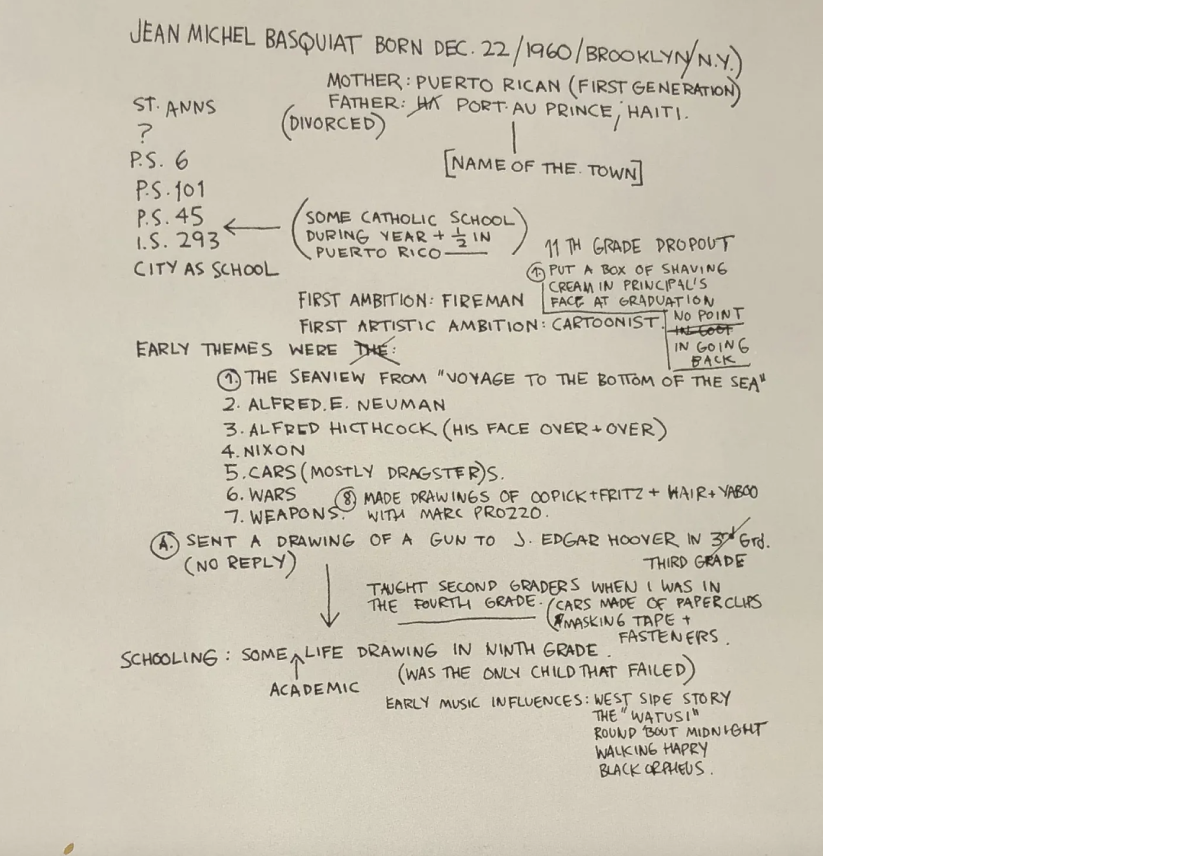 JEAN MICHEL BASQUIAT BORN DEC. 22/1960/BROOKLYN/N.Y.)
MOTHER: PUERTO RICAN (FIRST GENERATION)
FATHER: HA PORT-AU PRINCE, HAITI.
(DIVORCED)
[NAME OF THE TOWN]
ST. ANNS
?
P.S. 6
P.S. 101
P.S. 45
I.S. 293
CITY AS SCHOOL
(SOME CATHOLIC SCHOOL
DURING YEAR + 1/2 IN
PUERTO RICO)
11 TH GRADE DROPOUT
1 PUT A BOX OF SHAVING
CREAM IN PRINCIPAL'S
FACE AT GRADUATION
NO POINT
IN GOING
BACK
FIRST AMBITION: FIREMAN
FIRST ARTISTIC AMBITION: CARTOONIST.
EARLY THEMES WERE THE:
1. THE SEAVIEW FROM "VOYAGE TO THE BOTTOM OF THE SEA"
2. ALFRED.E. NEUMAN
3. ALFRED HICTHCOCK (HIS FACE OVER + OVER)
4. NIXON
5. CARS (MOSTLY DRAGSTER)S.
6. WARS
7. WEAPONS.
8. MADE DRAWINGS OF OOPICK + FRITZ + HAIR + YABOO
WITH MARC PROZZO.
A. SENT A DRAWING OF A GUN TO J. EDGAR HOOVER IN 3rd Grd.
THIRD GRADE
(NO REPLY)
TAUGHT SECOND GRADERS WHEN I WAS IN
THE FOURTH GRADE. (CARS MADE OF PAPERCLIPS
MASKING TAPE +
FASTENERS.
SCHOOLING: SOME LIFE DRAWING IN NINTH GRADE.
ACADEMIC
(WAS THE ONLY CHILD THAT FAILED)
EARLY MUSIC INFLUENCES: WEST SIDE STORY
THE "WATUSI"
ROUND 'BOUT MIDNIGHT
WALKING HARRY
BLACK ORPHEUS.